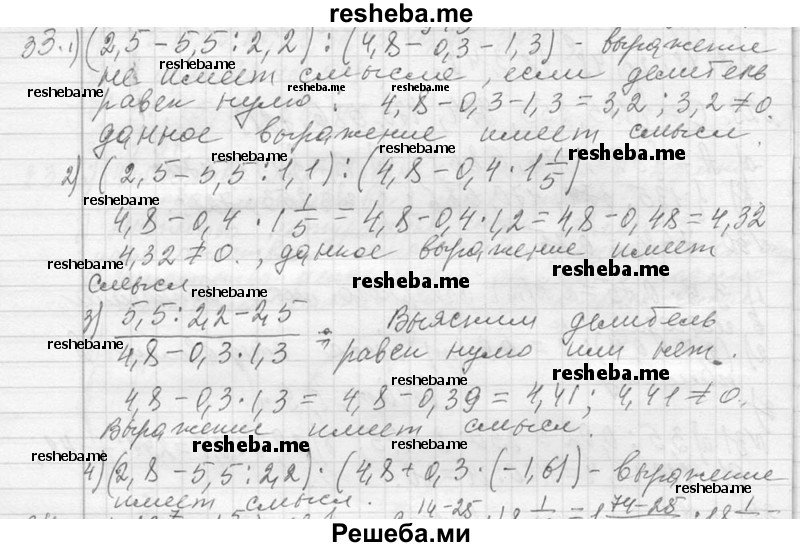 resheba.me
33.1) (2,5 – 5,5 : 2,2) : (4,8 – 0,3 – 1,3) – выражение
resheba.me resheba.me
не имеет смысла, если делитель
resheba.me resheba.me resheba.me
равен нулю. 4,8 – 0,3 – 1,3 = 3,2 ; 3,2 ≠ 0.
данное выражение имеет смысл.
resheba.me resheba.me resheba.me
2) (2,5 – 5,5 : 1,1) : (4,8 – 0,4 · 1 1/5)
resheba.me resheba.me
4,8 – 0,4 · 1 1/5 = 4,8 – 0,4 · 1,2 = 4,8 – 0,48 = 4,32
resheba.me resheba.me
4,32 ≠ 0., данное выражение имеет
resheba.me resheba.me resheba.me
смысл
resheba.me
3) 5,5 : 2,2 – 2,5 / 4,8 – 0,3 · 1,3 Выясним делитель
resheba.me
равен нулю или нет.
resheba.me resheba.me
4,8 – 0,3 · 1,3 = 4,8 – 0,39 = 4,41 ; 4,41 ≠ 0.
Выражение имеет смысл.
resheba.me resheba.me resheba.me
4) (2,8 – 5,5 : 2,2) · (4,8 + 0,3 · (–1,61) – выражение
resheba.me
имеет смысл.
14–25 74–25
Решеба.ми